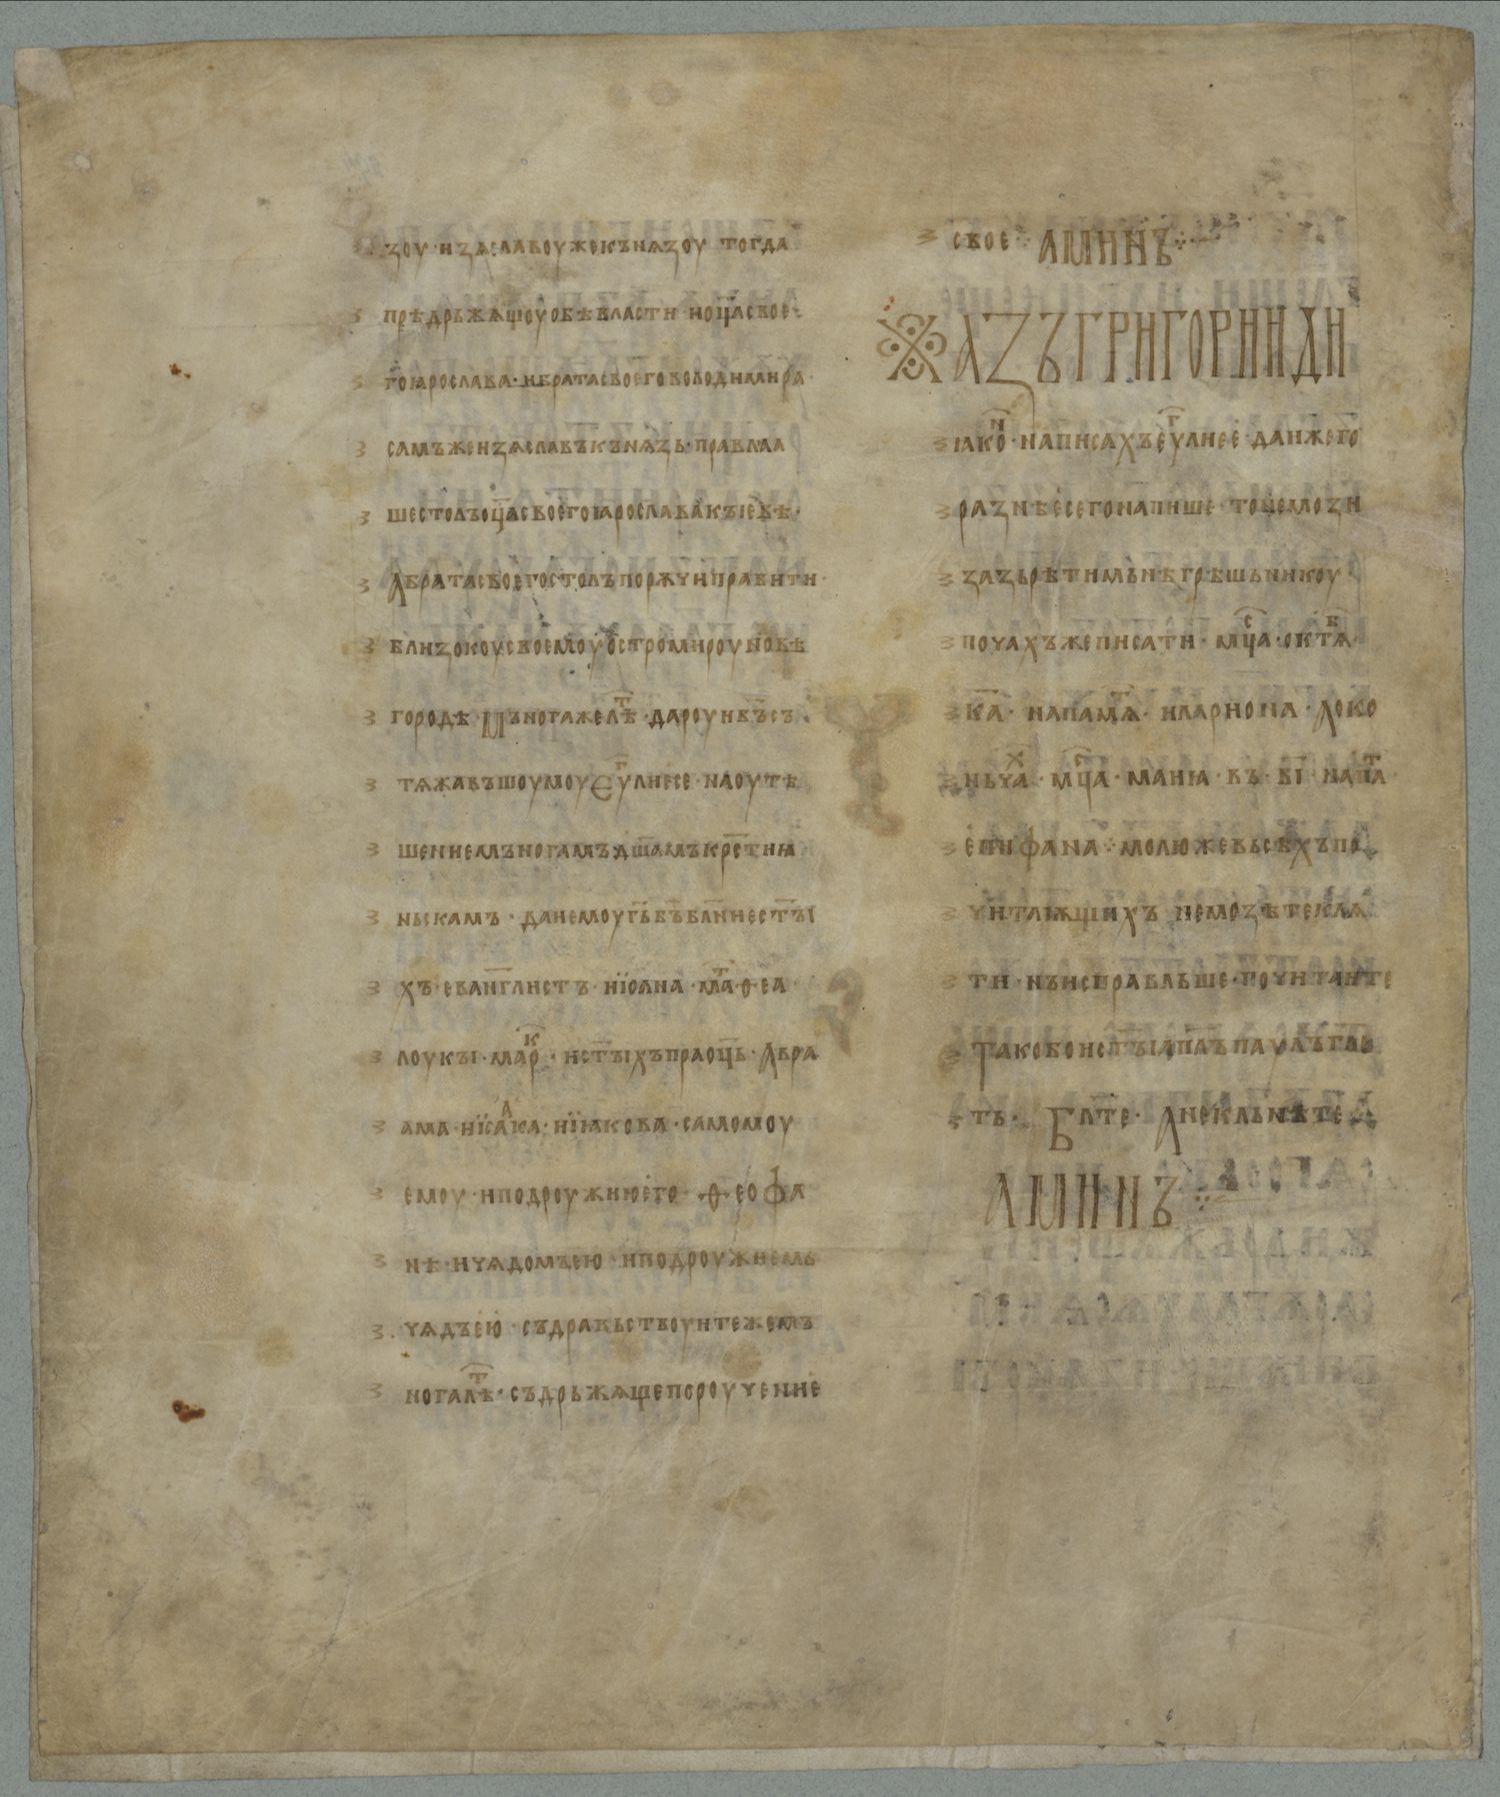 ꙁоу · иꙁѧславоу жекънѧꙁоу тогда
прѣдрьжѧщоу обѣ власти и оц҃а свое
го ꙗрослава · и брата своего володимира ·
самъ же иꙁѧславъ кънѧꙁь · правлꙗа
ше столъ оц҃а своего ꙗрослава кꙑевѣ ·
А брата своего столъ порѫчи правити ·
близокоу своемоу остромироу новѣ
городѣ · Мънога же лѣт҃ · дароуи бъ҃ съ
тѧжавъшоумоу Еуг҃лиѥ се · на оутѣ
шениѥ мъногамъ дш҃амъ крьстиꙗ
ньскамъ · дай ѥмоу гь҃ бъ҃ бл҃ние ст҃ꙑ
хъ · еванг҃листъ · и іѡана · мат҃ѳеа ·
лоукꙑ · мар҃к · и ст҃ꙑхъ праоц҃ь · Авра
ама · и їса҃ака · и їꙗкова · самомоу
ѥмоу · и подроужию ѥго · ѳеофа
нѣ · и чѧдомъ ею · и подроужиемь
чѧдъ ею · съдравьствоуите же мъ
ногалѣ҃т · съдрьжѧще пороучение
свое ⁘ АМИНЪ ⁘
АꙀЪ ГРИГОРИИ ДИ
ꙗко҃н · написахъ еу҃глие е · да иже го
раꙁнѣе сего напише · то не моꙁи
ꙁаꙁьрѣти мьнѣ грѣшьникоу ·
почахъ же писати · мц҃а · октѧ҃б ·
к҃а · на памѧ҃т · илариона · А око
ньча҃х · мц҃а · маиꙗ · въ · в҃і · на па҃т
епифана ⁘ молю же вьсѣхъ по
читаѭщихъ не моꙁѣте клѧ
ти · нъ исправльше · почитаите
Тако бо и ст҃ꙑ ап҃лъ паулъ гл҃ѥ
ть · Бл҃те · А не кльнѣте
АМИНЪ ⁘